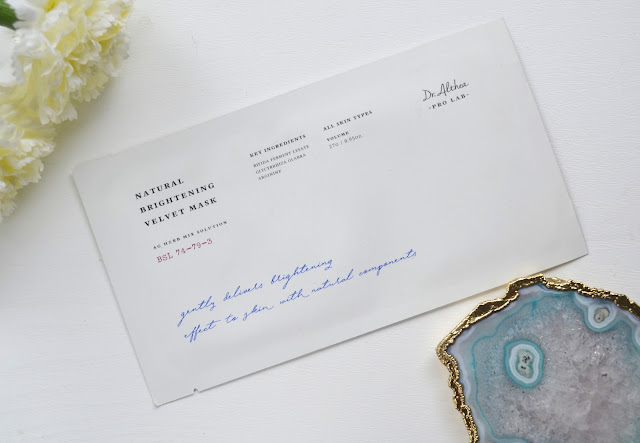 Dr. Althea
-PRO LAB-
ALL SKIN TYPES
VOLUME
27g / 0.95oz.
KEY INGREDIENTS
BIFIDA FERMENT LYSATE
GLYCYRRHIZA GLABRA
ARGININE
NATURAL
BRIGHTENING
VELVET MASK
AG HERB MIX SOLUTION
BSL 74-79-3
gently delivers brightening
effect to skin with natural components